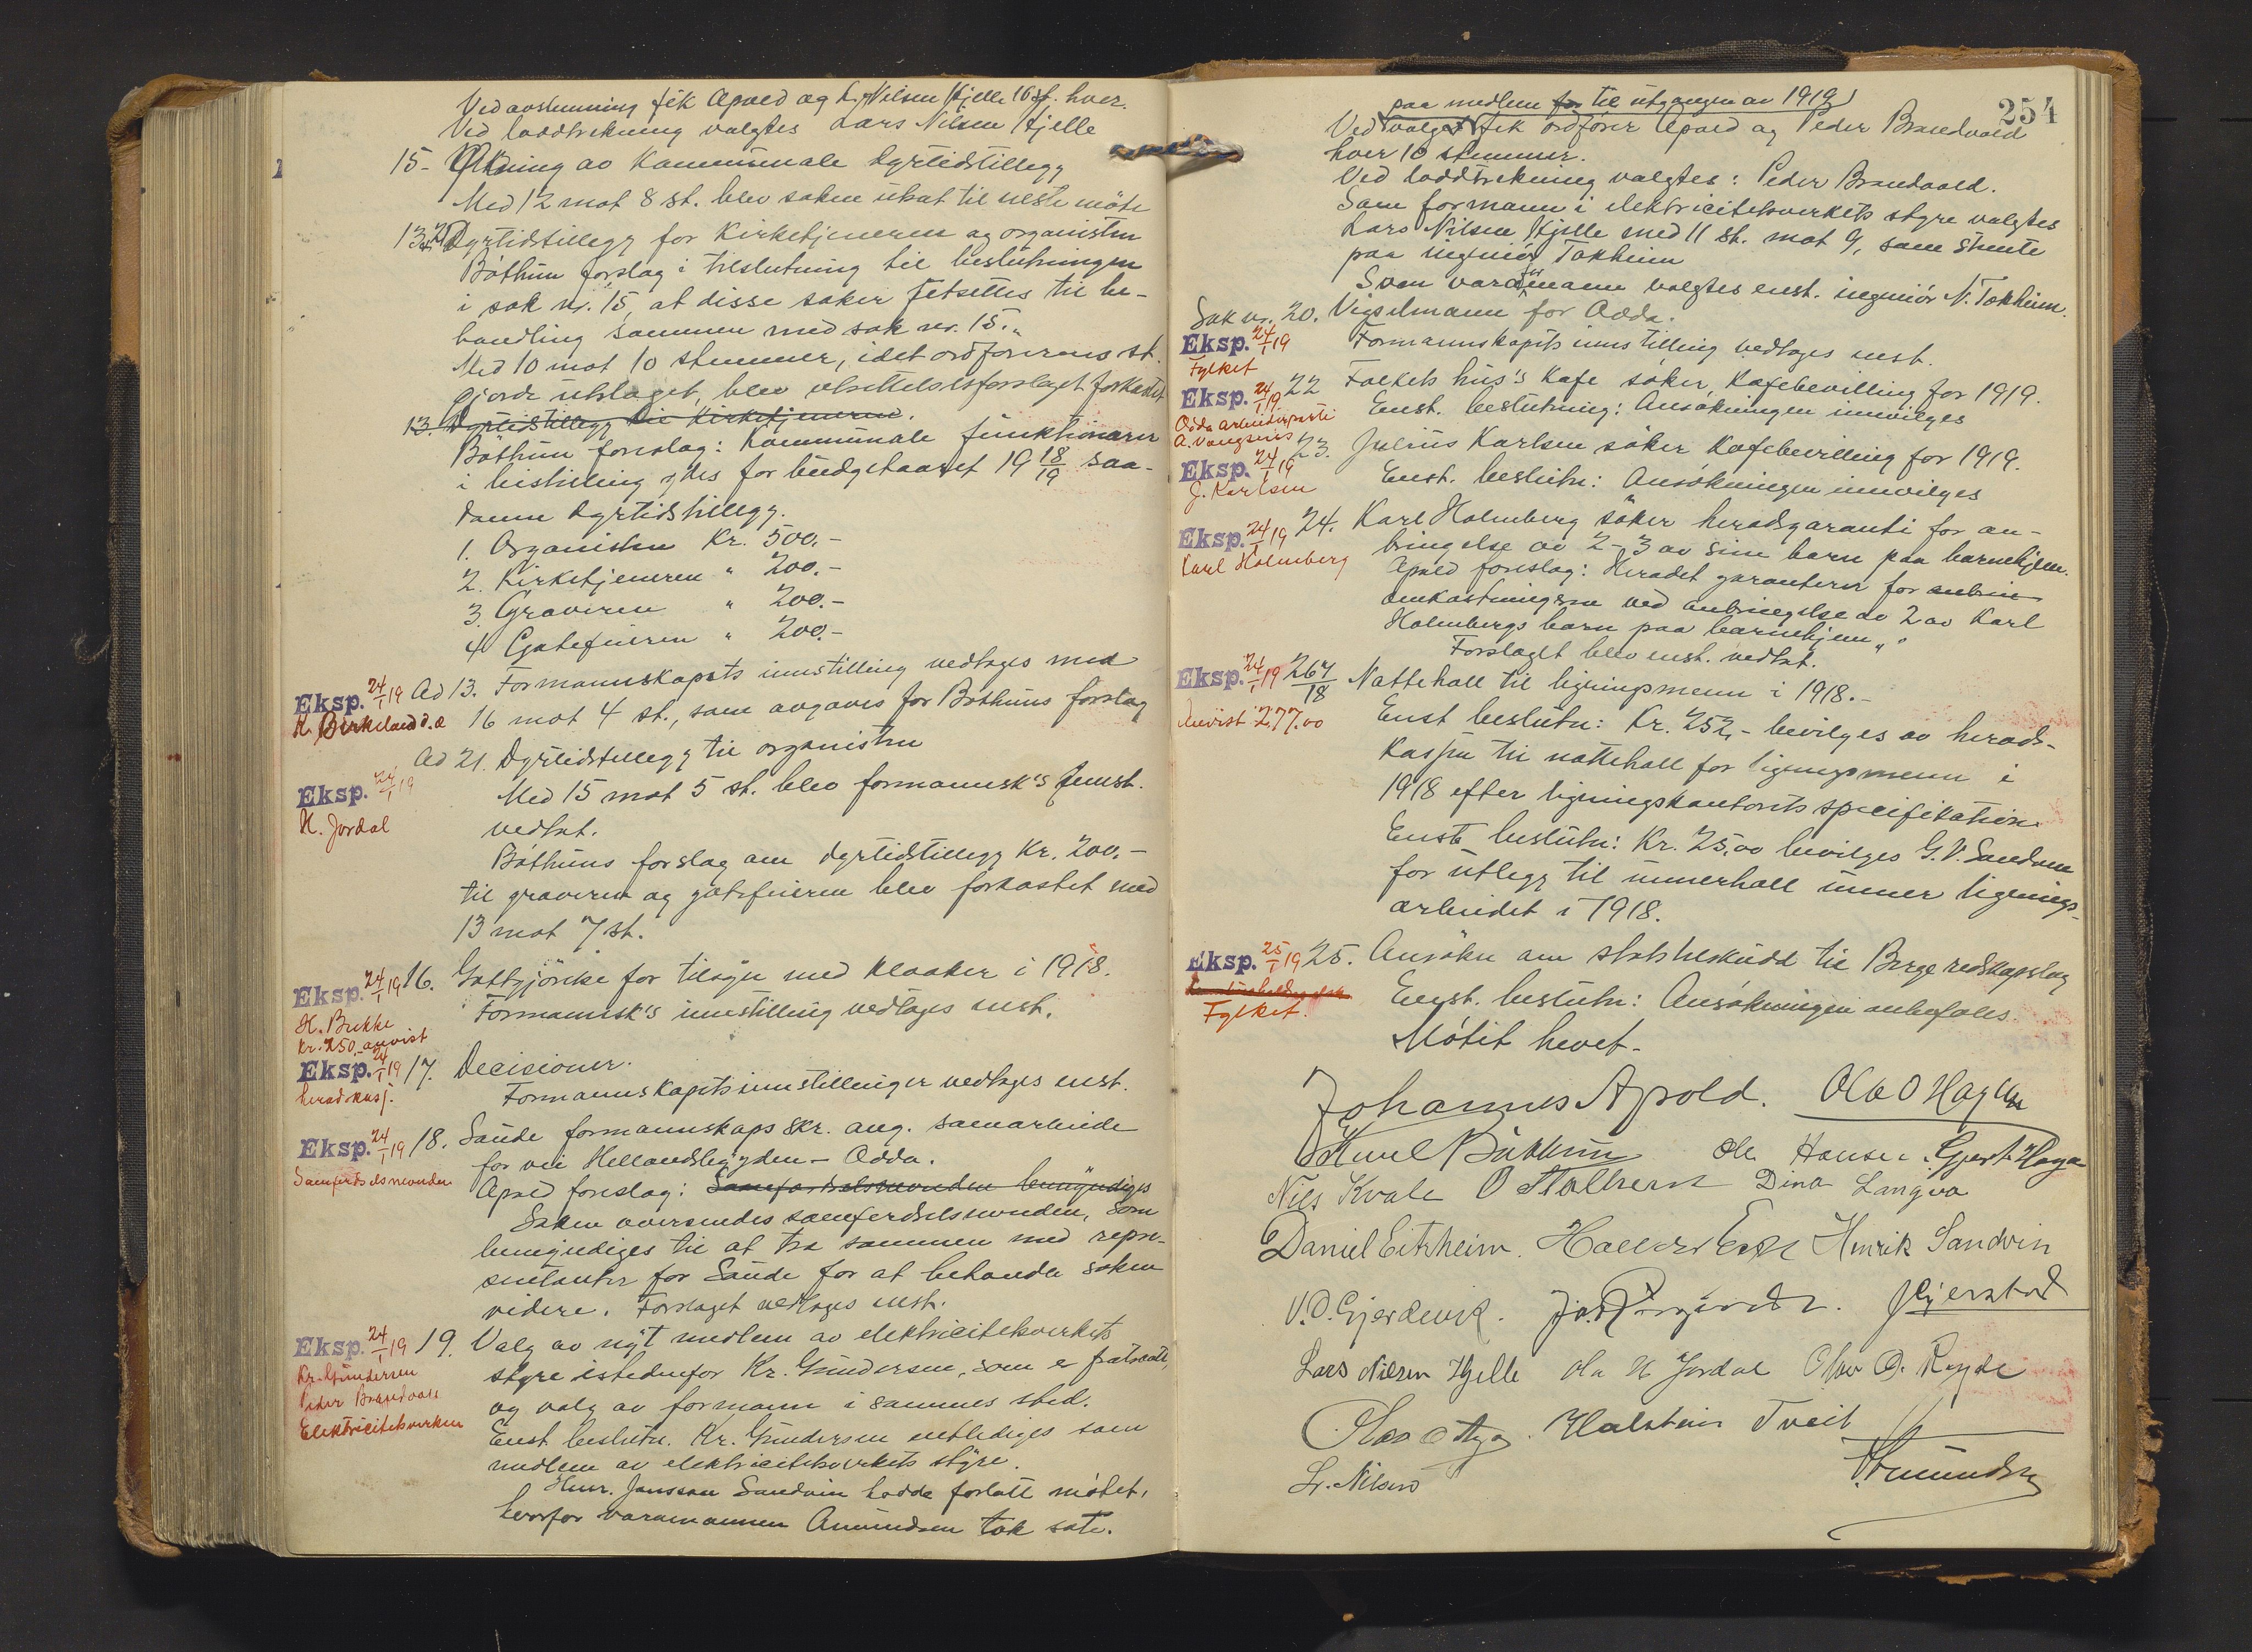 Ved avstemning fik Apold og L. Nilsen Hjelle 10 st. hver.
Ved loddtrekning valgtes Lars Nilsen Hjelle
15- Økning av kommunale dyrtidstillegg
Med 12 mot 8 st. blev saken utsat til neste møte
13 21 Dyrtidstillegg for Kirketjeneren og organisten
Böthun forslag i tilslutning til beslutningen
i sak nr. 15, at disse saker utsettes til be-
handling sammen med sak nr. 15.
Med 10 mot 10 stemmer, idet ordførerens st.
gjorde utslaget, blev utsettelsesforslaget forkastet
13. Dyrtidstillegg til Kirketjeneren.
Böthun foreslag: Kommunale funktionærer
i bistilling ydes for budgetaaret 19 18/19 saa-
danne dyrtidstillegg.
1. Organisten Kr. 500.-
2. Kirketjeneren " 200.-
3. Graveren " 200.-
4 Gatefeieren " 200.-
Eksp. 24/1 19 Ad 13. Formannskapets innstilling vedtages med
K. Birkeland d.e. 16 mot 4 st., som avgaves for Böthuns forslag
Ad 21. Dyrtidstillegg til organisten
Eksp. 24/1 19 Med 15 mot 5 st. blev formannsk's innst.
H. Jordal vedtat.
Böthuns forslag om dyrtidstillegg Kr. 200.-
til graveren og gatefeieren blev forkastet med
13 mot 7 st.
Eksp. 24/1 19 16. Godtgjörelse for tilsyn med kloaker i 1918.
H. Bukke Formannsk's innstilling vedtages enst.
Kr. 250,- anvist
Eksp. 24/1 19 17. Decisioner.
heradskasj. Formannskapets innstillinger vedtages enst.
Eksp. 24/1 19 18. Saude formannskaps skr. ang. samarbeide
for vei Hellandsbygden - Odda.
Samferdselsnevnden Apold foreslag: Samferdselsnevnden bemyndiges
Saken oversendes samferdselsnevnden, som
bemyndiges til at tra sammen med repre-
sentanter for Saude for at behandle saken
videre. Forslaget vedtages enst.
Eksp. 24/1 19 19. Valg av nyt medlem av elektricitetsverkets
Kr. Gundersen styre istedenfor Kr. Gundersen, som er fratraadt,
Peder Brandvold og valg av formann i sammes sted.
Elektricitetsverken Enst beslutn. Kr. Gundersen entlediges som
medlem av elektricitetsverkets styre.
Henr. Jansson Sandvin hadde forlatt møtet,
hvorfor varamannen Amundsen tok sæte.
254
paa medlem for til utgangen av 1919
Ved valget fik ordfører Apold og Peder Brandvold
hver 10 stemmer.
Ved loddtrekning valgtes: Peder Brandvold.
Som formann i elektricitetsverkets styre valgtes
Lars Nilsen Hjelle med 11 st. mot 9, som stemte
paa ingeniør Tokheim
Som varaformann valgtes enst. ingeniør N. Tokheim.
Sak nr. 20. Vigselmann for Odda.
Eksp. 24/1 19 Formannskapets innstilling vedtages enst.
Fylket
Eksp. 24/1 19 22 Folkets hus's Kafe søker Kafebevilling for 1919.
Odda arbeiderparti Enst. beslutning: Ansøkningen innvilges
A. Vangsnes
23. Julius Karlsen søker Kafebevilling for 1919.
Eksp. 24/1 19
J. Karlsen Enst. beslutn: Ansøkningen innvilges
Eksp. 24/1 19 24. Karl Holmberg søker heradsgaranti for an-
Karl Holmberg bringelse av 2-3 av sine barn paa barnehjem.
Apold foreslag: Heradet garanterer for anbrin
omkostningene ved anbringelse av 2 av Karl
Holmbergs barn paa barnehjem.
Forslaget blev enst. vedtat.
Eksp. 24/1 19 264/18 Nattehall til ligningsmenn i 1918.-
Anvist 277.00 Enst beslutn: Kr. 252,- bevilges av herads-
kassen til nattehall for ligningsmenn i
1918 efter ligningskontorets specifikation.
Enst. beslutn: Kr. 25,00 bevilges G. V. Sandven
for utlegg til innerhall unner lignings-
arbeidet i 1918.
Eksp. 25/1 19 25. Ansökn om statstilskudd til Berge redskapslag
Fylket. Enst. beslutn: Ansøkningen anbefales.
Møtet hevet.
Johannes Apold. Olav O Hagen
Emil Böthun Ole Hansen. Gjert Haga
Nils Kvale O Stallvern Dina Langva
Daniel Eitrheim. Henrik Sandvin
V. O. Gjerdevik. J Gjerstad
Lars Nilsen Hjelle Ola H Jordal Olav O. Ragde
Halstein Tveit
L. Nilsen Amundsen